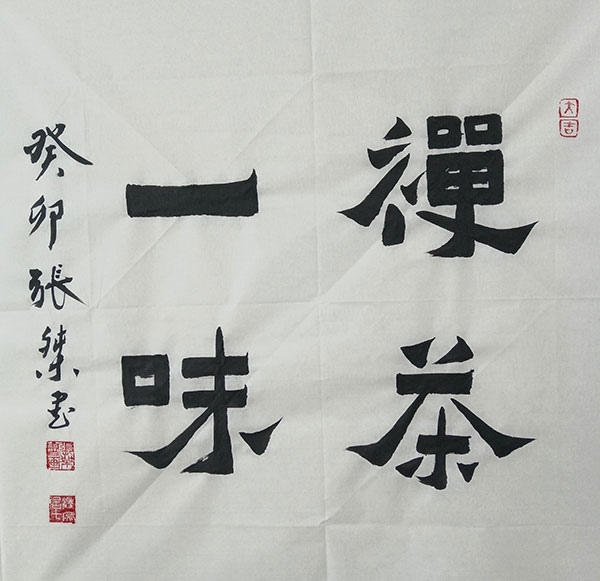 大吉
禪茶
一味
癸卯張桀書